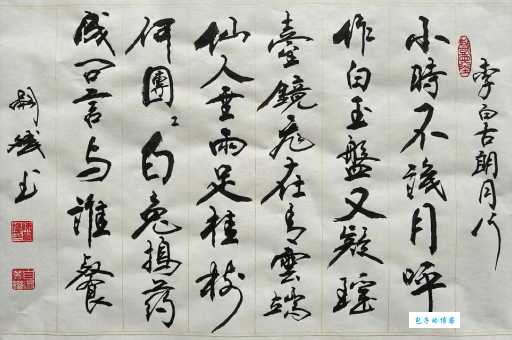 李白古朗月行
小時不識月呼
作白玉盤又疑瑤
臺鏡飛在青雲端
仙人垂兩足桂樹
何團々白兔搗药
成问言与誰餐